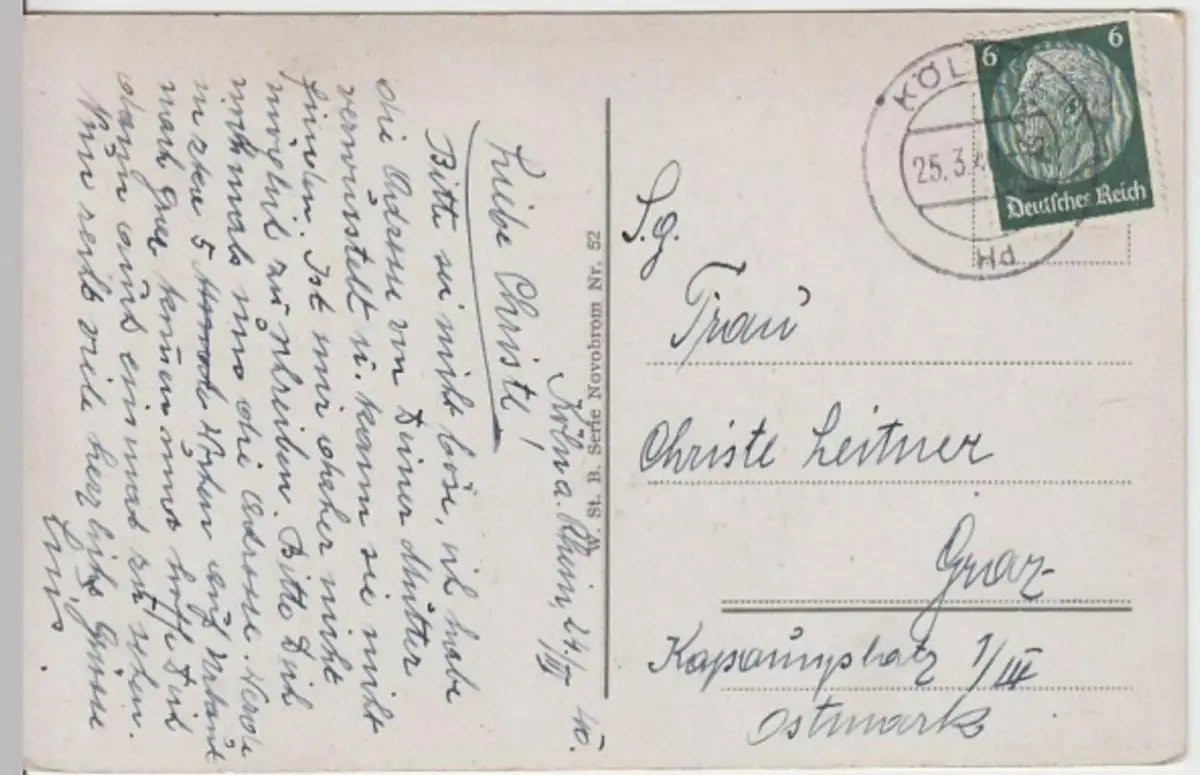 Köln a. Rhein, 24./III 40.
Liebe Christl!
Bitte sei nicht böse, ich habe
die Adresse von Deiner Mutter
verwurstelt u. kann sie nicht
finden. Ist mir daher nicht
möglich zu schreiben. Bitte Dich
nochmals um die Adresse. Werde
in zka 5 Wochen auf Urlaub
nach Graz kommen u. hoffe Dich
dann auch einmal zu sehen.
Nun recht viele herzliche Grüsse
W. St. B. Serie Novobrom Nr. 52
KÖL
25.3.4
Hd
6 6
Deutsches Reich
S.g.
Frau
Christe Leitner
Graz
Kapaunplatz 1/III
Ostmark